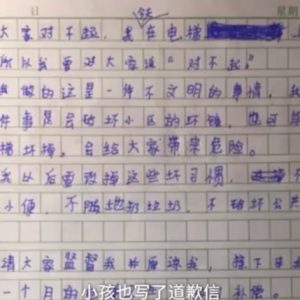 日 星期
大家对不起，我在电梯
所以我要对大家说“对不起”
我做的这是一件不文明的事情，我
件事是会破坏小区的环境，也可能
梯坏掉。会给大家带来危险。
我以后要改掉这些坏习惯，
小便，不随地扔垃圾，不破坏公共
请大家监督我并原谅我，接下来
一个月的
小孩也写了道歉信